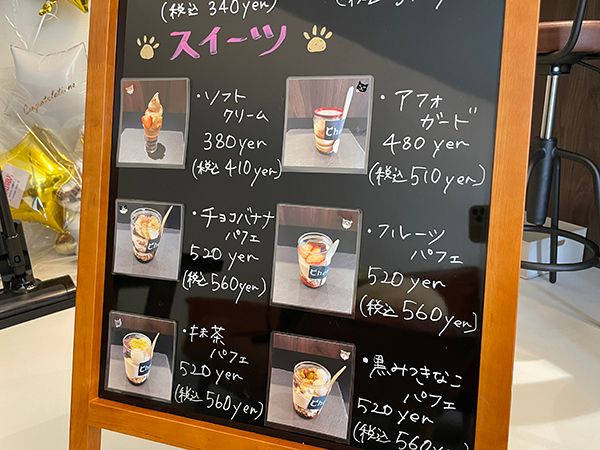 (税込 340yen)
スイーツ
・ソフト
クリーム
380yen
(税込 410yen)
・アフォ
ガード
480yen
(税込 510yen)
・チョコバナナ
パフェ
520yen
(税込 560yen)
・フルーツ
パフェ
520yen
(税込 560yen)
・抹茶
パフェ
520yen
(税込 560yen)
・黒みつきなこ
パフェ
520yen
(税込 560yen)
Congratulations